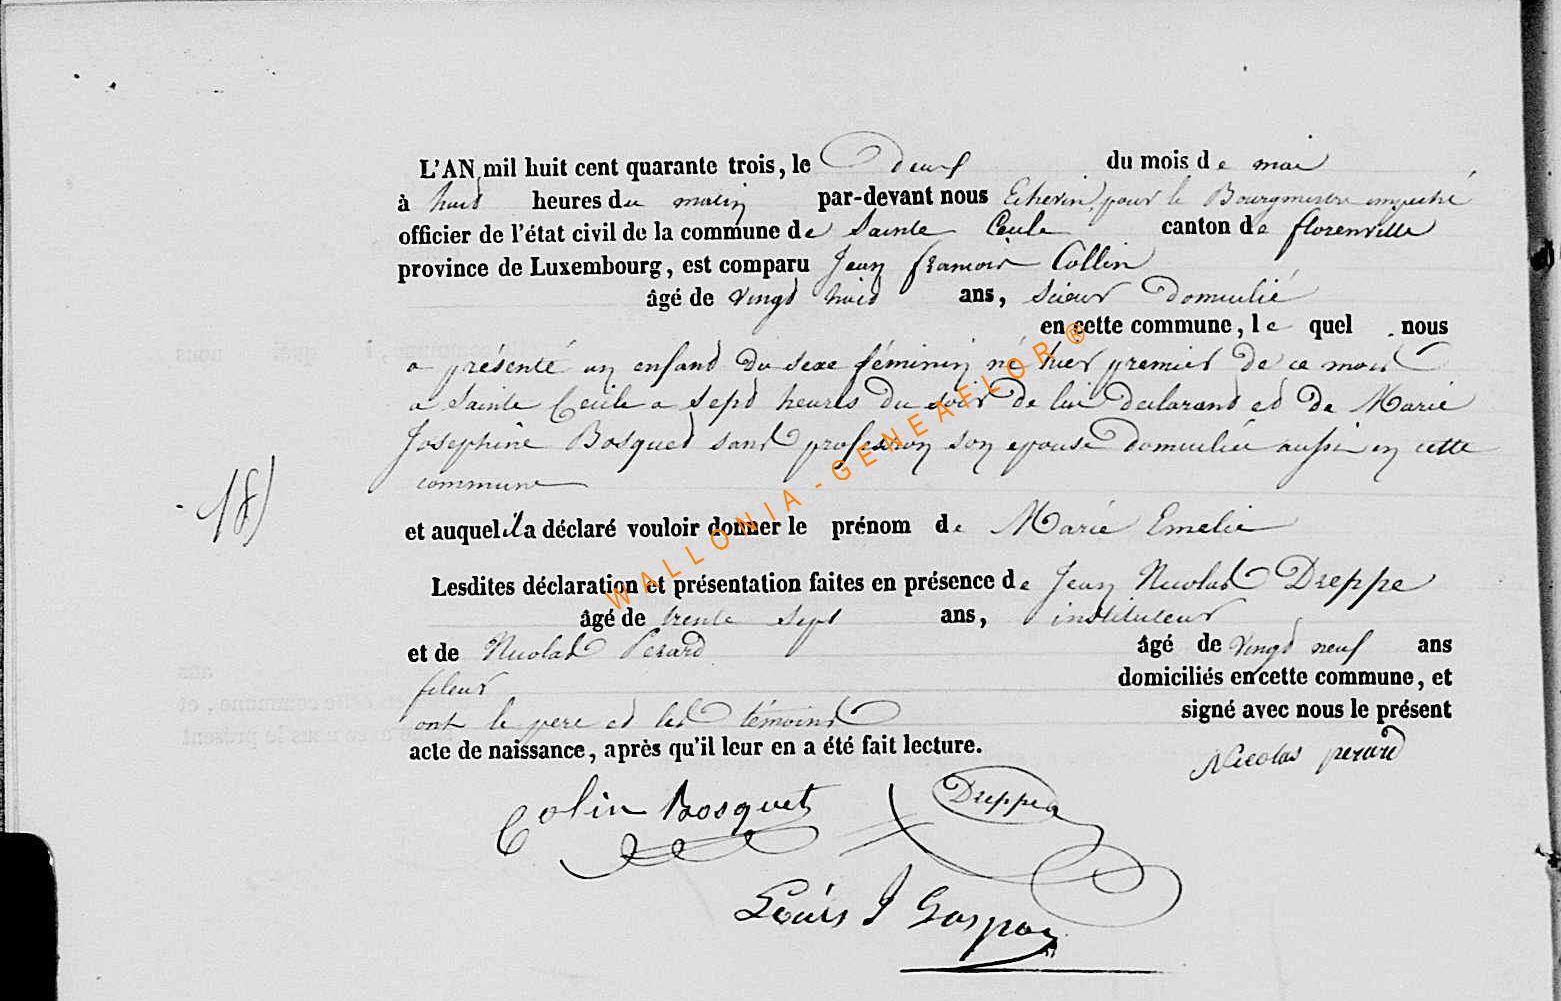 L'AN mil huit cent quarante trois, le deux du mois de mai
à huit heures du matin par-devant nous Echevin pour le Bourgmestre empeché
officier de l'état civil de la commune de Sainte Cecile canton de florenville
province de Luxembourg, est comparu Jean francois Collin
âgé de vingt huit ans, scieur Domicilié
en cette commune, le quel nous
a présenté un enfant du sexe féminin né hier premier de ce mois
a Sainte Cecile a sept heures du soir de lui declarant et de Marie
Josephine Bosquet sans profession son epouse domiciliée aussi en cette
commune
18)
et auquel il a déclaré vouloir donner le prénom de Marie Emelie
Lesdites déclaration et présentation faites en présence de Jean Nicolas Dreppe
âgé de trente sept ans, instituteur
et de Nicolas Perard âgé de vingt neuf ans
fileur domiciliés en cette commune, et
ont le pere et les témoins signé avec nous le présent
acte de naissance, après qu'il leur en a été fait lecture.
Nicolas perard
Colin Bosquet Dreppe
Louis J Gaspar
WALLONIA - GENEAFLOR ®